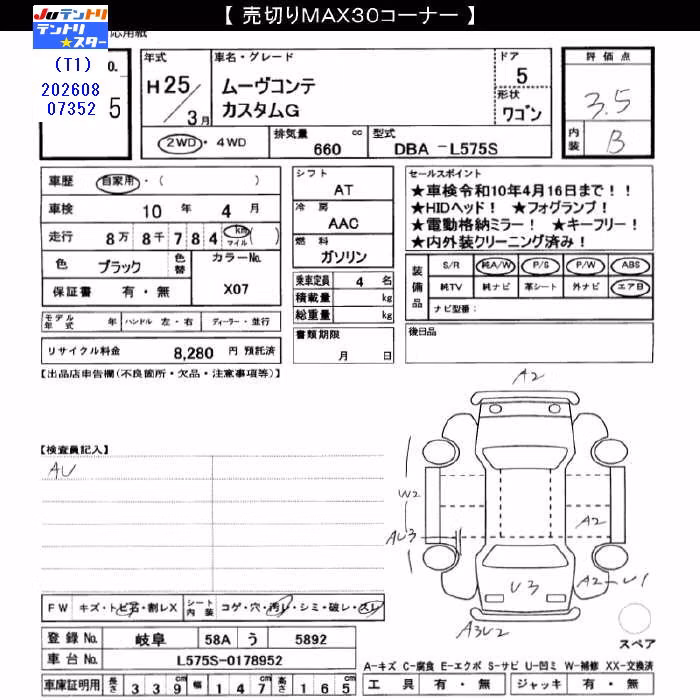 【 売切りMAX30コーナー 】
JUテントリ
テントリ★スター
応用紙
(T1)
202608
07352
o.
5
年式
H25/3月
車名・グレード
ムーヴコンテ
カスタムG
ドア
5
形状
ワゴン
評価点
3.5
内装
B
2WD・4WD
排気量 660 cc
型式 DBA -L575S
車歴 自家用・( )
車検 10 年 4 月
走行 8万 8千 7 8 4 km マイル ( )
色 ブラック 色替
カラーNo. X07
保証書 有・無
シフト
AT
冷房
AAC
燃料
ガソリン
乗車定員 4 名
積載量 kg
総重量 kg
セールスポイント
★車検令和10年4月16日まで！！
★HIDヘッド！ ★フォグランプ！
★電動格納ミラー！ ★キーフリー！
★内外装クリーニング済み！
装備品
S/R 純A/W P/S P/W ABS
純TV 純ナビ 革シート 外ナビ エアB
ナビ型番：
モデル年式 年 ハンドル 左・右 ディーラー・並行
リサイクル料金 8,280 円 預託済
書類期限
月 日
後日品
【出品店申告欄(不良箇所・欠品・注意事項等)】
【検査員記入】
AU
A2
W2
AU3
A2
A2
U1
U3
A3U2
スペア
FW キズ・トビ石・割レX シート内装 コゲ・穴・汚レ・シミ・破レ・スレ
登録No. 岐阜 58A う 5892
車台No. L575S-0178952
車庫証明用 長さ 3 3 9 cm 幅 1 4 7 cm 高さ 1 6 5 cm
A-キズ C-腐食 E-エクボ S-サビ U-凹ミ W-補修 XX-交換済
工具 有・無 ジャッキ 有・無